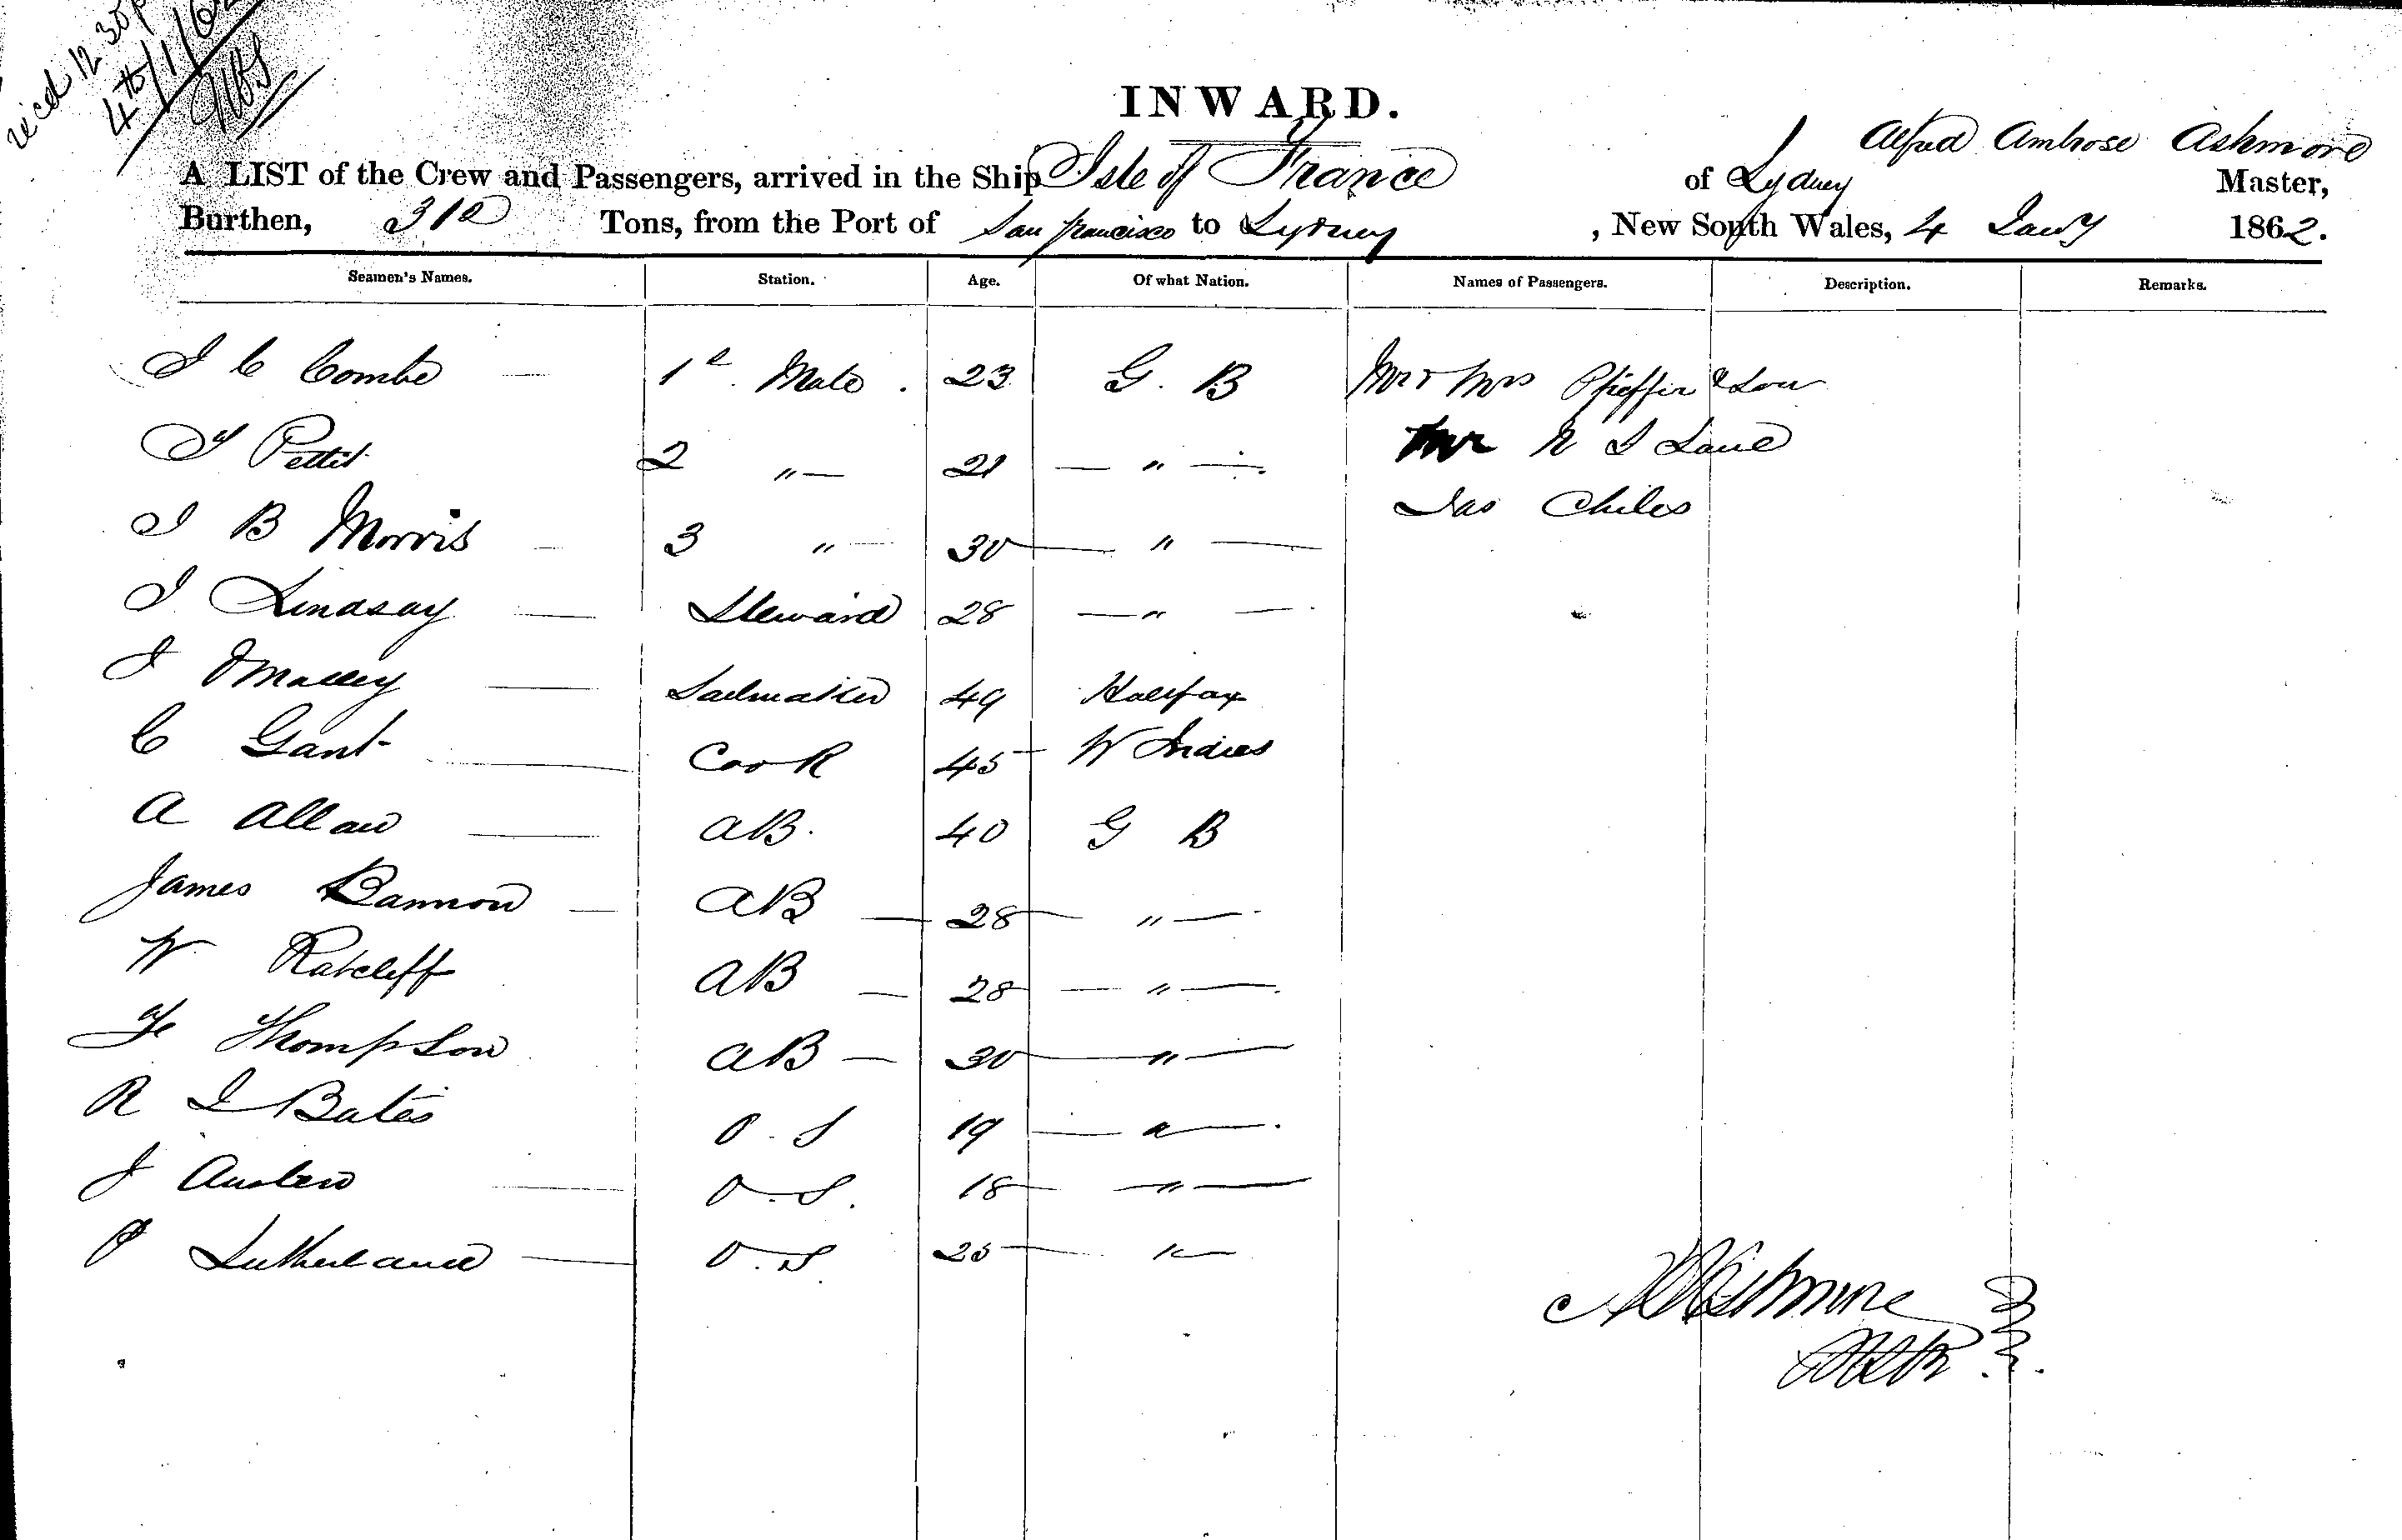 recd 12 30 p
4th/1/62
INWARD.
Alfred Ambrose Ashmore
A LIST of the Crew and Passengers, arrived in the Ship Isle of France of Sydney Master,
Burthen, 310 Tons, from the Port of San Francisco to Sydney, New South Wales, 4 Jany 1862.
Seamen's Names. Station. Age. Of what Nation. Names of Passengers. Description. Remarks.
J C Combe — 1t. Mate. 23 G. B Mr & Mrs Pfieffer & Son
T Pettit 2 "— 21 — " — Mr R I Lane
J B Morris — 3 "— 30 — " — Jas Chiles
J. Lindsay — Steward 28 — " —
J OMalley — Sailmaker 49 Halifax
C Gant — Cook 45 — W Indies
A Allan — AB. 40 G B
James Bannon — AB — 28 — " —
W Ratcliff AB — 28 — " —
F Thompson AB — 30 — " —
R I Bates O. S 19 — " —
J Austen — O. S. 18 — " —
P Sutherland — O. S. 25 — " —
A A Ashmore